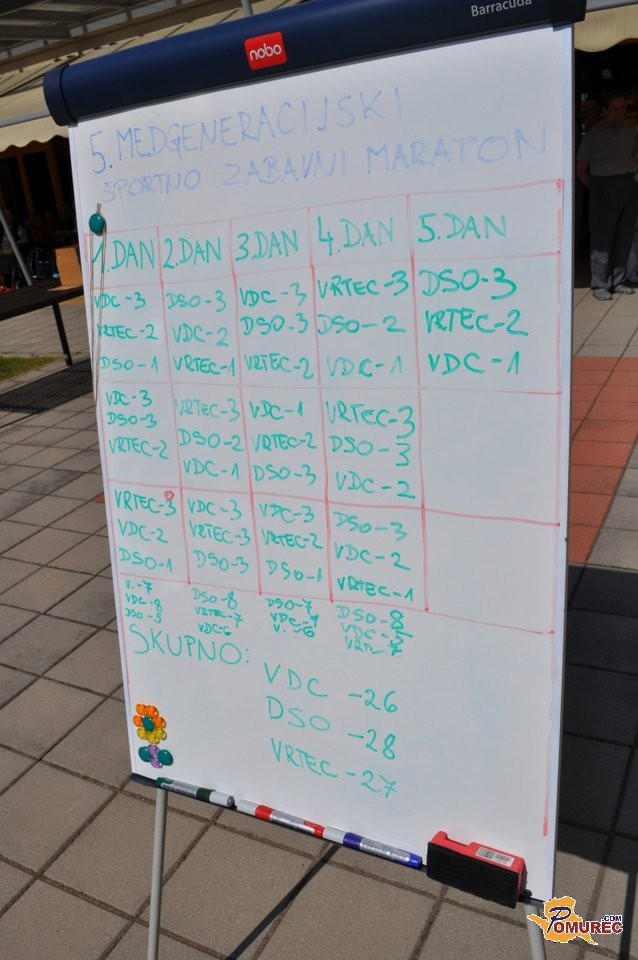 Barracuda
nobo
5. MEDGENERACIJSKI
ŠPORTNO ZABAVNI MARATON
1. DAN 2. DAN 3. DAN 4. DAN 5. DAN
VDC-3 DSO-3 VDC-3 VRTEC-3 DSO-3
VRTEC-2 VDC-2 DSO-3 DSO-2 VRTEC-2
DSO-1 VRTEC-1 VRTEC-2 VDC-1 VDC-1
VDC-3 VRTEC-3 VDC-1 VRTEC-3
DSO-3 DSO-2 VRTEC-2 DSO-3
VRTEC-2 VDC-1 DSO-3 VDC-2
VRTEC-3 VDC-3 VDC-3 DSO-3
VDC-2 VRTEC-3 VRTEC-2 VDC-2
DSO-1 DSO-3 DSO-1 VRTEC-1
V.-7 DSO-8 DSO-7 DSO-8
VDC-8 VRTEC-7 VDC-7 VDC-5
DSO-5 VDC-6 V.-6
SKUPNO:
VDC -26
DSO -28
VRTEC -27
POMUREC.COM